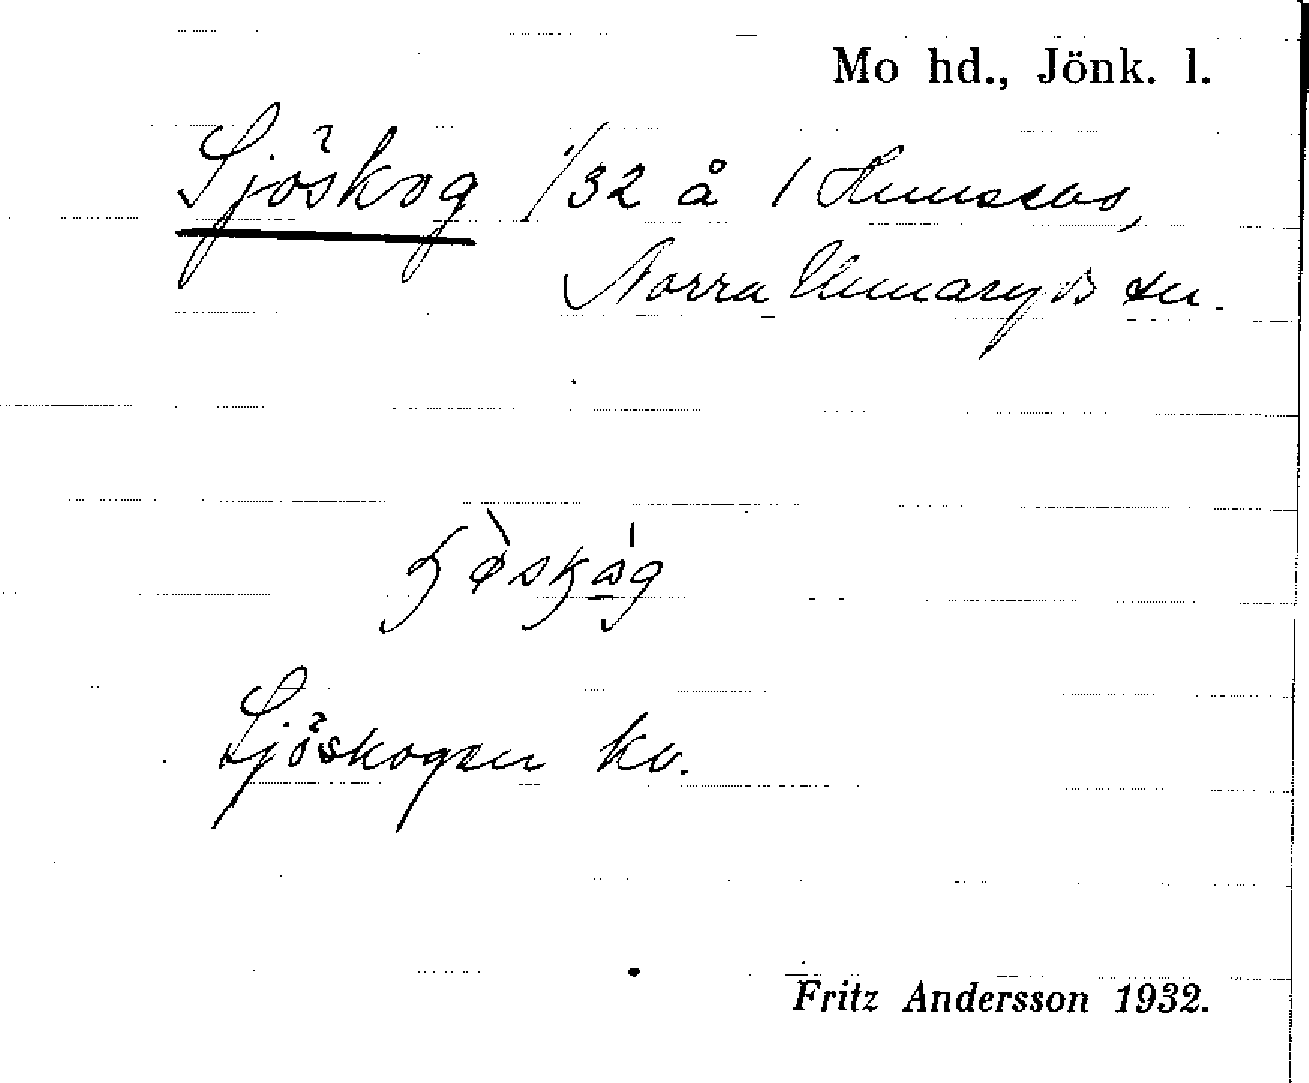 Mo hd., Jönk. l.
Sjöskog 1/32 å 1
Norra Unnaryds sn.
Sjöskogen kv.
Fritz Andersson 1932.